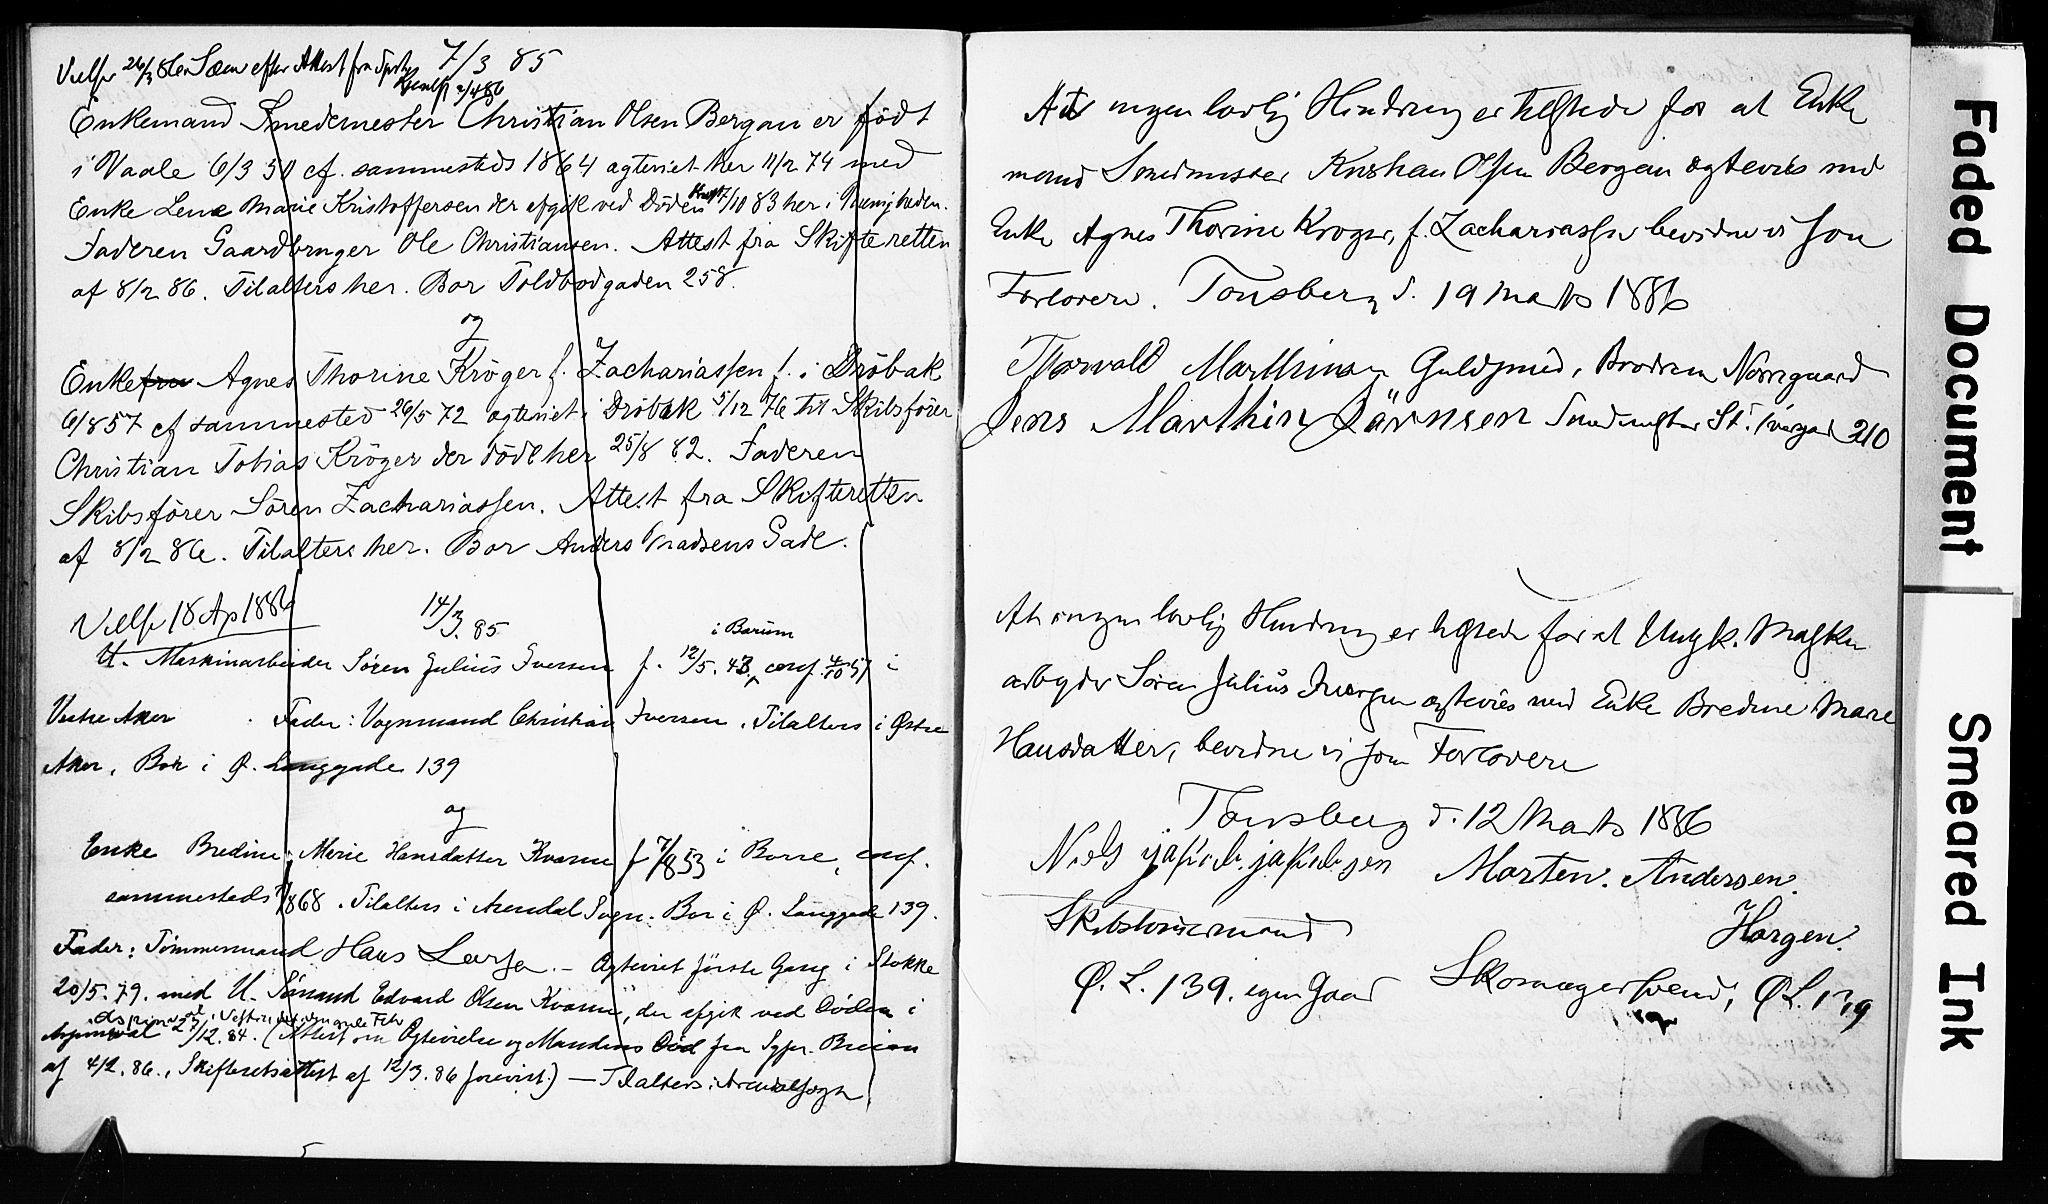 Vielse 26/3 86 i Sæm efter Attest fra Spr.
2/4 86
7/3 85
Enkemand Smedemester Christian Olsen Bergan er født
i Vaale 6/3 50 cf. sammesteds 1864 ægteviet her 11/2 74 med
Enke Lene Marie Kristoffersen der afgik ved Døden 7/10 83 her i Menigheden.
Faderen Gaardbruger Ole Christiansen. Attest fra Skifteretten
af 8/2 86. Tilalters her. Bor Toldbodgaden 258.
og
Enkefru Agnes Thorine Krøger f. Zachariassen f. i Drøbak
6/8 57 cf sammested 26/5 72 ægteviet i Drøbak 5/12 76 til Skibsfører
Christian Tobias Krøger der døde her 25/8 82. Faderen
Skibsfører Sören Zachariassen. Attest fra Skifteretten
af 8/2 86. Tilalters her. Bor Anders Madsens Gade.
Vielse 18 Ap 1886
14/3. 85
i Bærum
U. Maskinarbeider Søren Julius Iversen f. 12/5. 43, conf. 57 i
Vestre Aker . Fader: Vognmand Christian Iversen. Tilalters i Østre
Aker, Bor i Ø. Langgade 139
og
Enke Bredine Marie Hansdatter Kvarne f 7/8 53 i Borre, conf.
sammesteds 1868. Tilalters i Arendal Sogn. Bor i Ø. Langgade 139.
Fader: Tømmermand Hans Larsen. – Ægteviet første Gang i Stokke
20/5. 79. med U. Sömand Edvard Olsen Kvarne, der afgik ved Døden i
27/12. 84. (Attest om Ægtevielse og Mandens Død fra Sgpr.
af 4/2. 86., Skifteretsattest af 12/3. 86 forevist.) – Tilalters i Arendal sogn

At ingen lovlig Hindring er tilstede for at Enke
mand Smedmester Kristian Olsen Bergan ægtevies med
Enke Agnes Thorine Krøger, f. Zachariassen bevidne vi som
Forlovere. Tønsberg d. 19 Marts 1886
Thorvald Marthinsen Guldsmed, Brødrene Nørregaard
Jens Marthin Smedmester St. 210
At ingen lovlig Hindring er tilstede for at Ungk. Maskin
arbeyder Søren Julius Iversen ægtevies med Enke Bredine Marie
Hansdatter, bevidne vi som Forlovere
Tønsberg d. 12 Marts 1886
Niels jakob jakobsen Morten. Andersen.
Skibstømermand Horgen.
Ø. L. 139. egen Gaard Skomagersvend, Ø L. 139
Faded Document
Smeared Ink